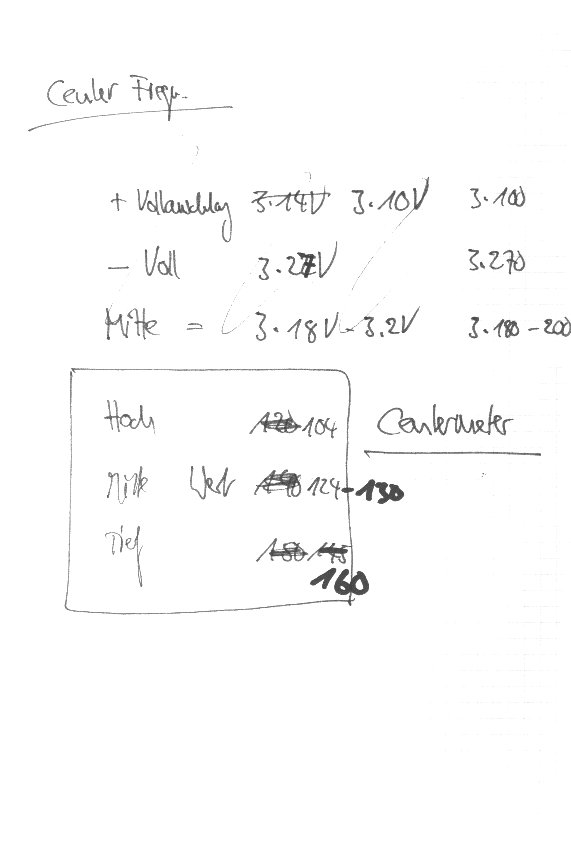 Center Frequ.
+ Vollauschlag 3.14V 3.10V 3.100
- Voll 3.27V 3.270
Mitte = 3.18V - 3.2V 3.180 - 200
Hoch 104
Centermeter
Mitte Wert 124-130
Tief 145
160